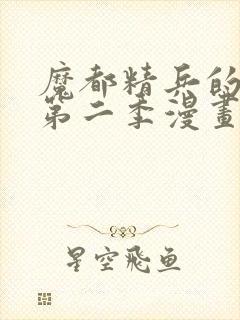 魔都精兵的
第二季漫畫
星空飛鱼